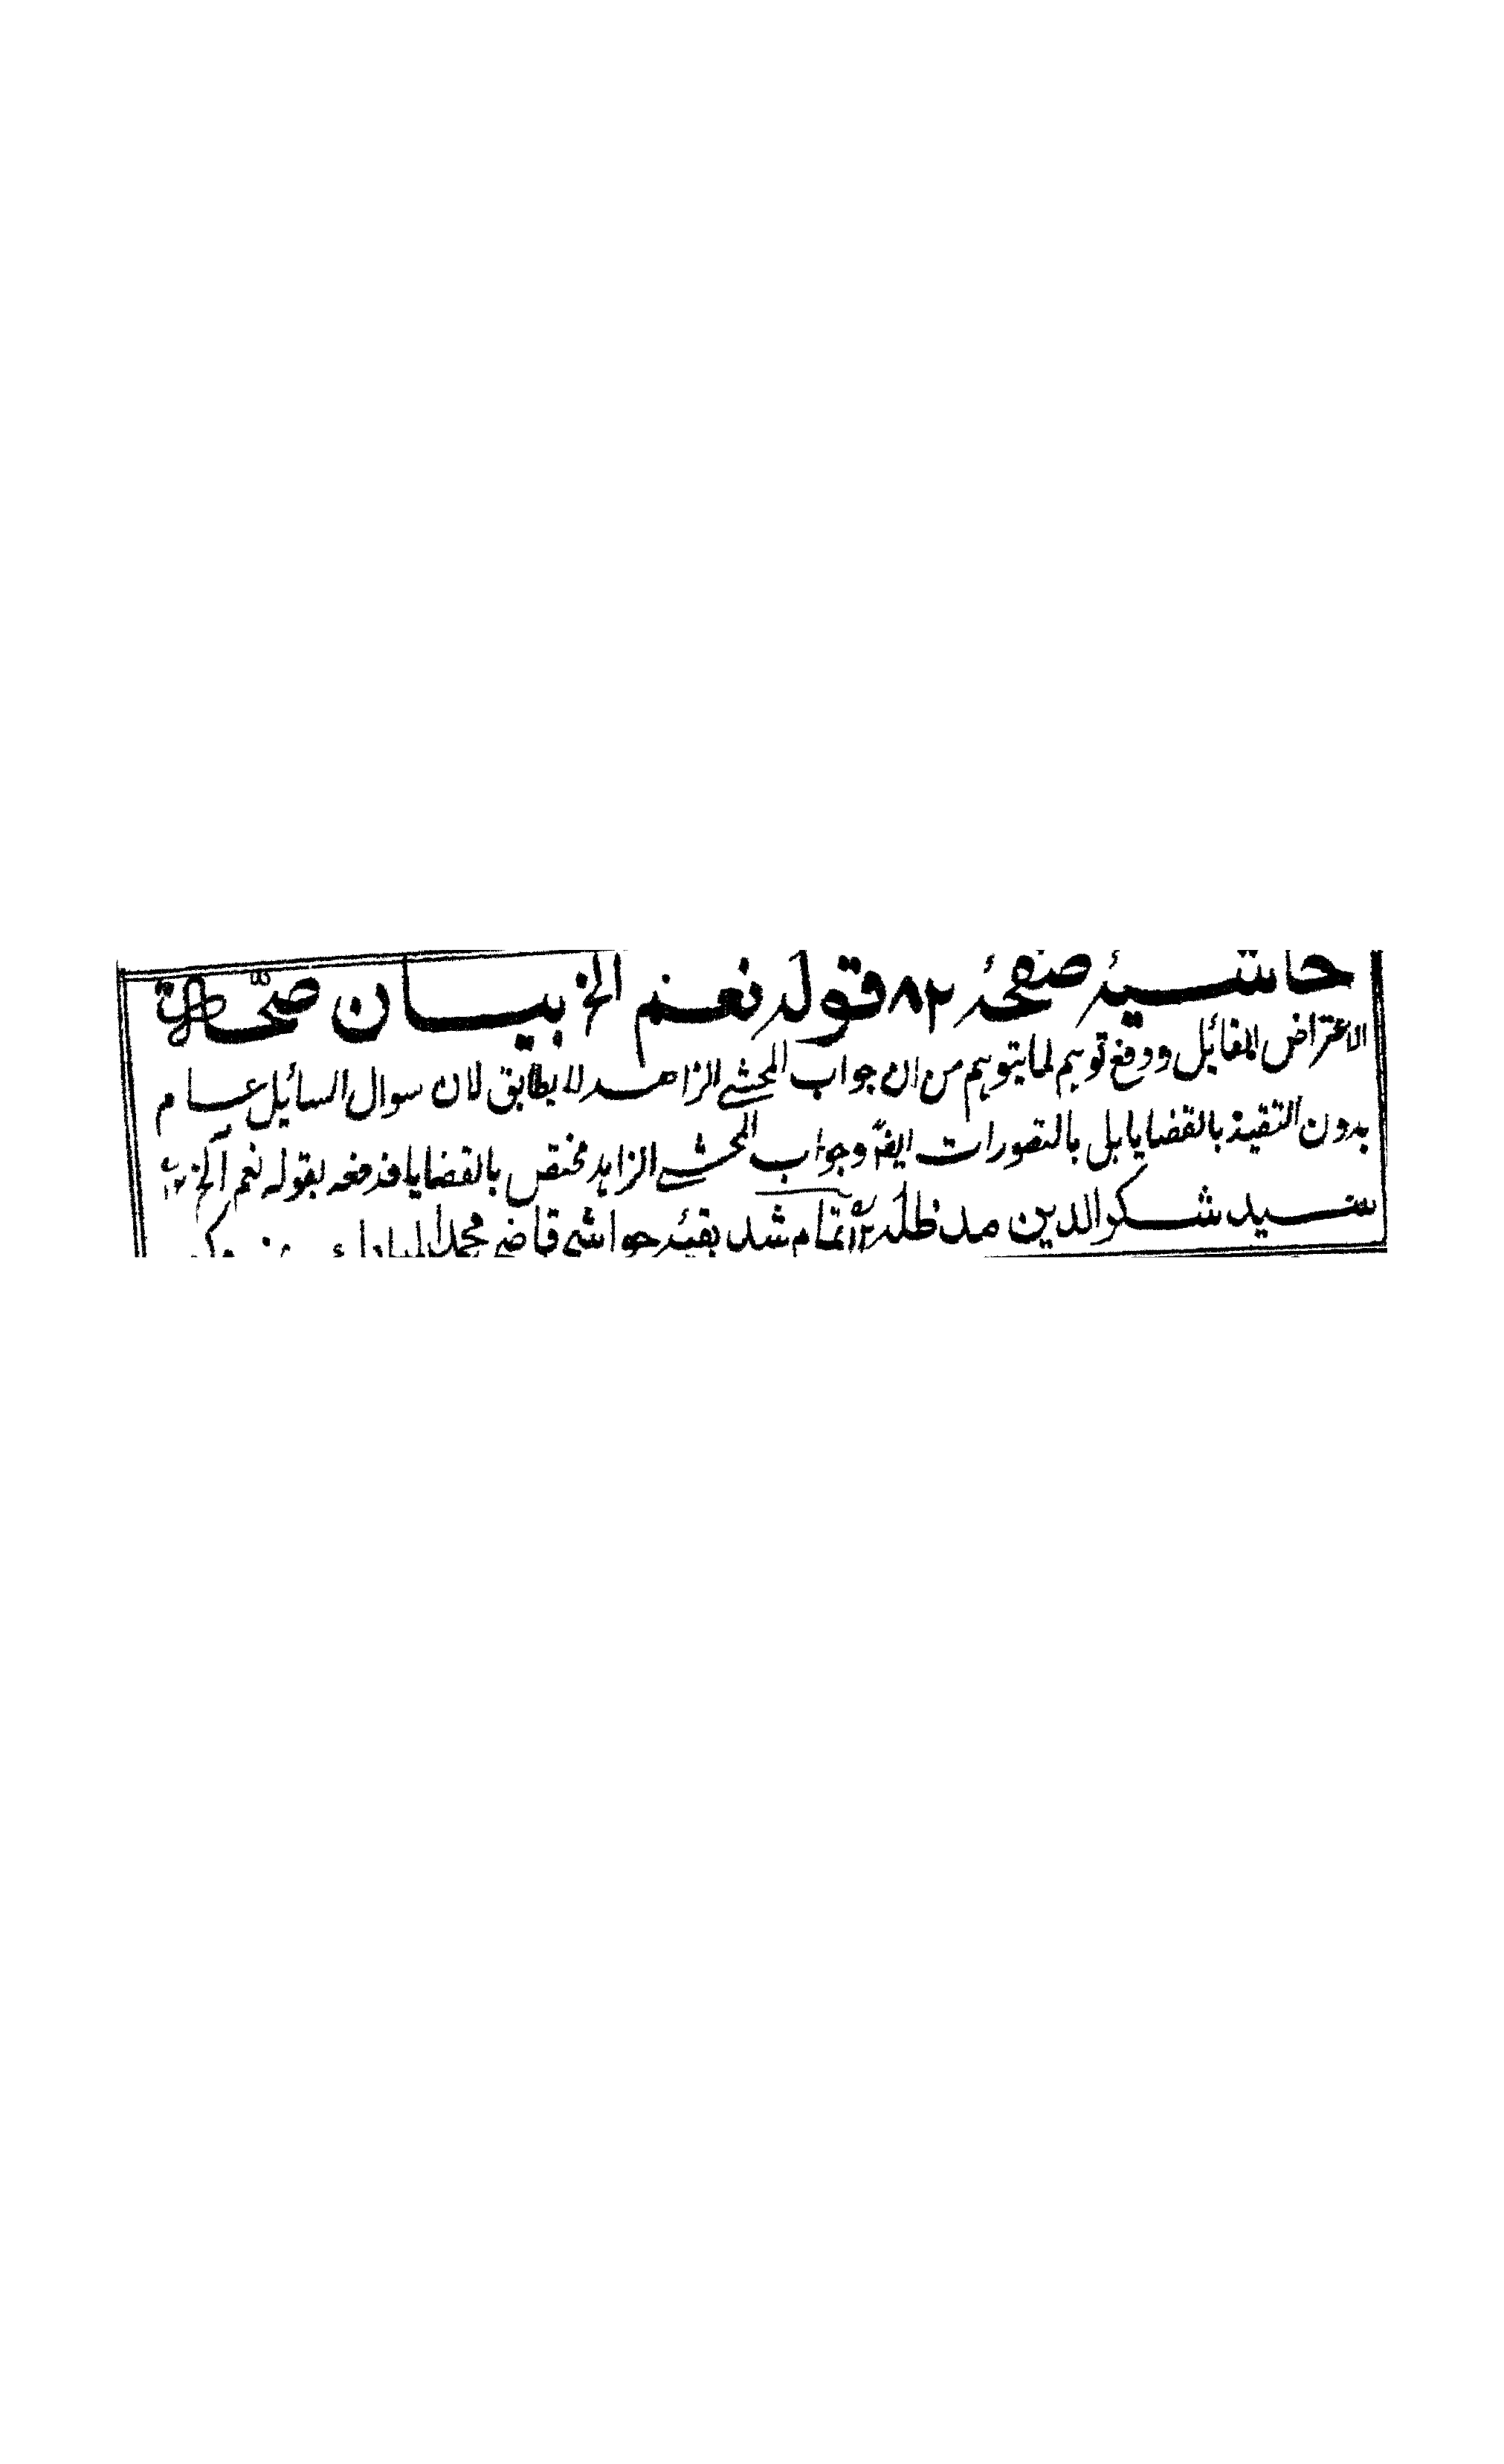 حاشيۀ صفحۀ ٨٢ قوله نعم الخ بيان صحة
الاعتراض القائل ودفع توهم لما يتوهم من ان جواب المحشے الزاهد لا يطابق لان سوال السايل عام
بدون التقيد بالقضايا بل بالتصورات ايضا وجواب المحشے الزاہد مختص بالقضايا فدفعه بقوله نعم الخ ١٢
سيد شكر الدين مد ظله ١٢ تمام شد بقيۀ حواشی قاضی محمد